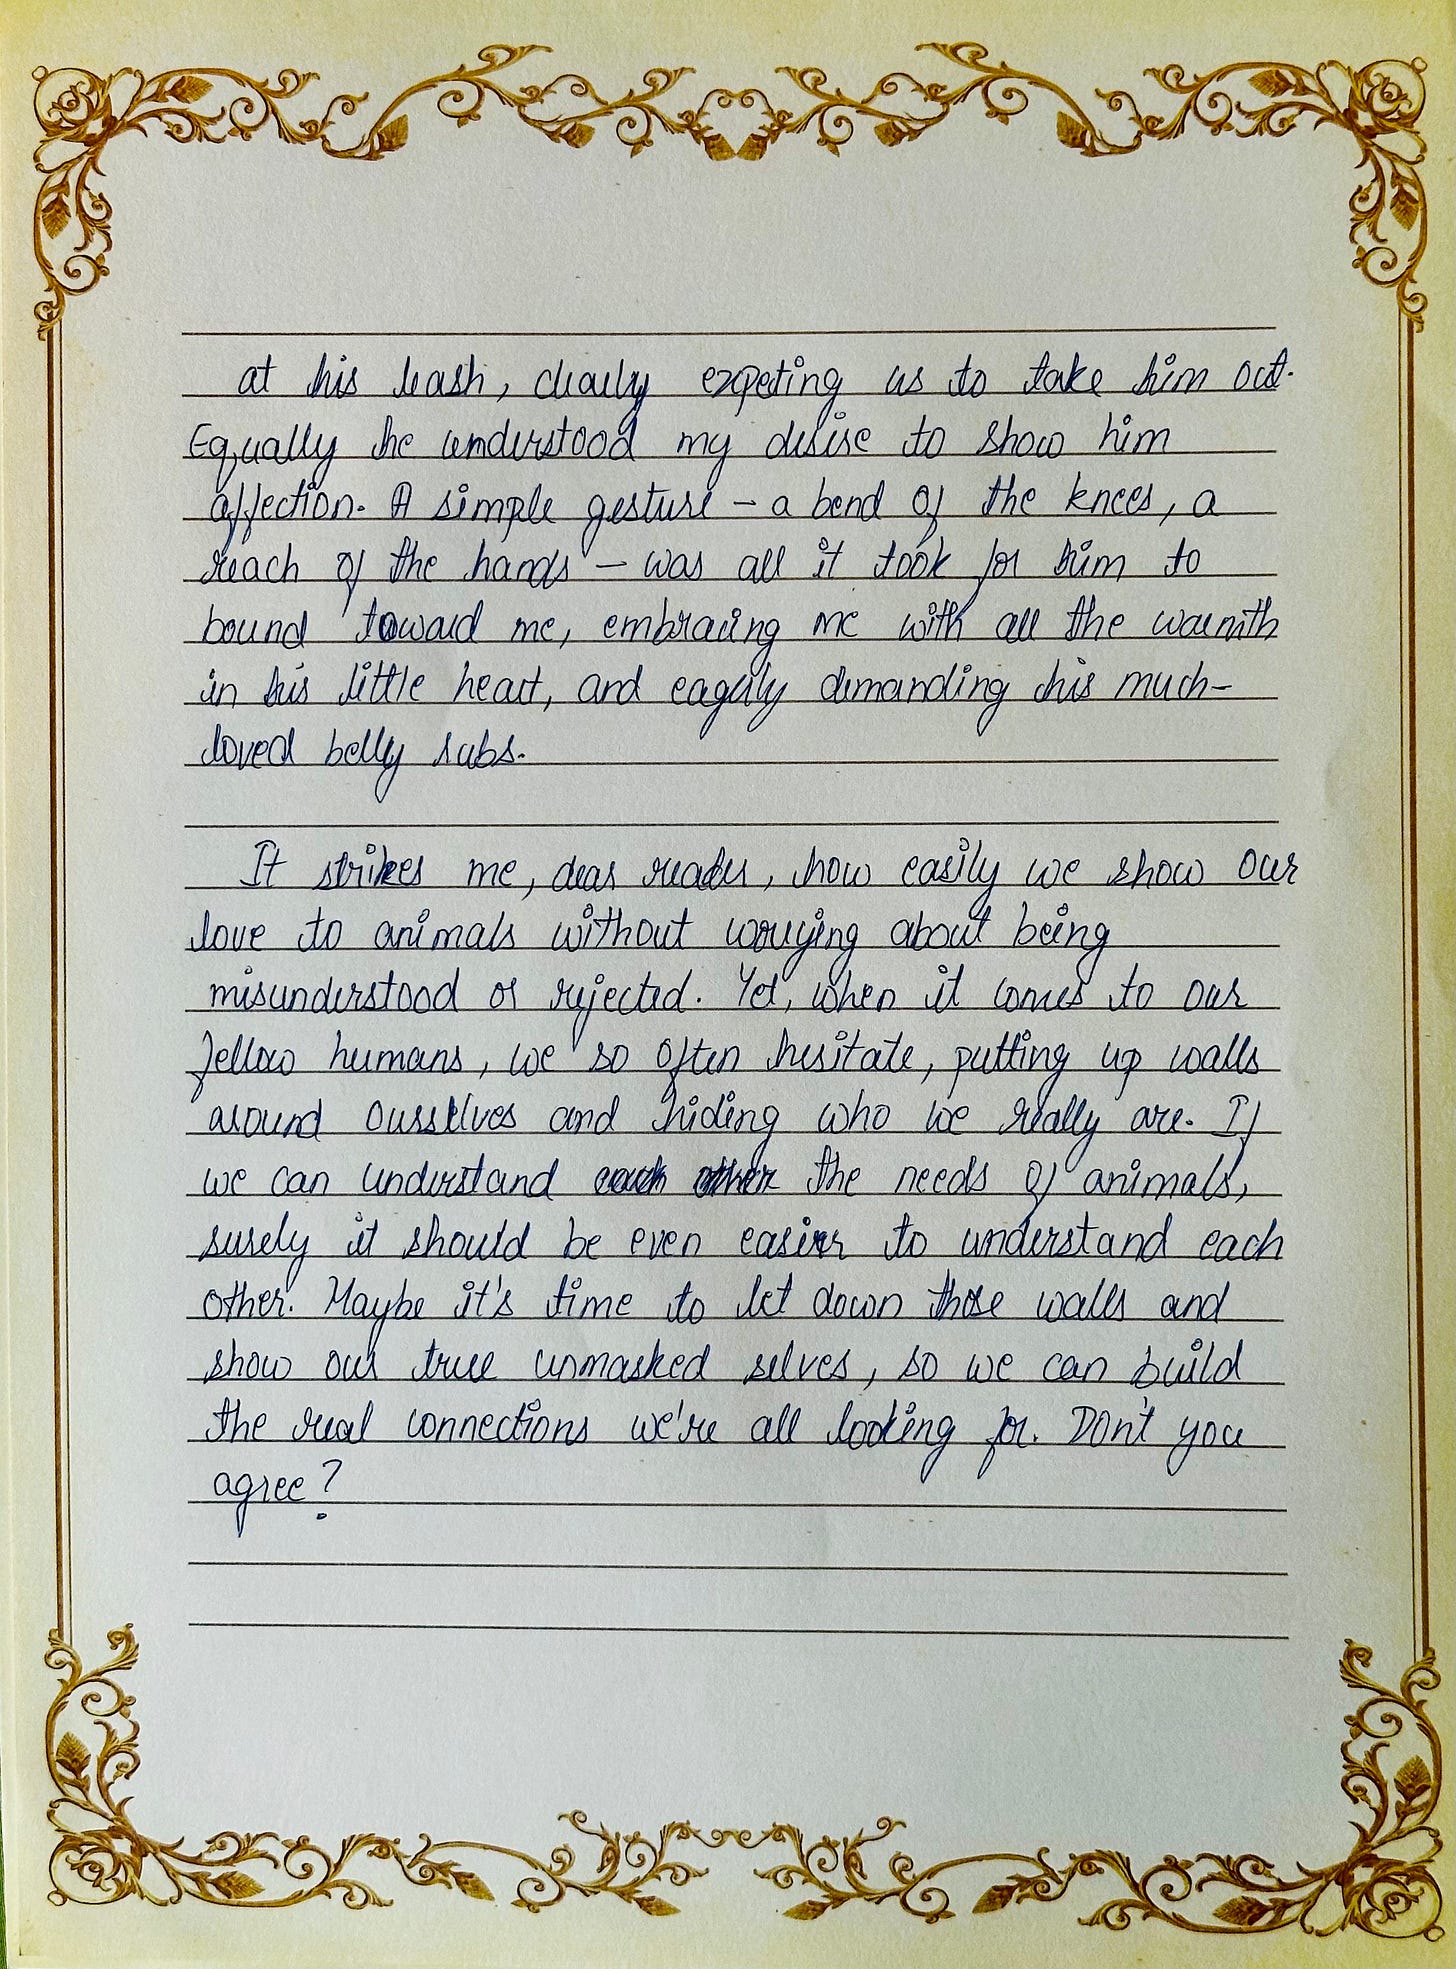 at his leash, clearly expeting us to take him out.
Equally he understood my desire to show him
affection. A simple gesture – a bend of the knees, a
reach of the hands – was all it took for him to
bound toward me, embracing me with all the warmth
in his little heart, and eagerly demanding his much-
loved belly rubs.
It strikes me, dear reader, how easily we show our
love to animals without worrying about being
misunderstood or rejected. Yet, when it comes to our
fellow humans, we so often hesitate, putting up walls
around ourselves and hiding who we really are. If
we can understand each other the needs of animals,
surely it should be even easier to understand each
other. Maybe it's time to let down those walls and
show our true unmasked selves, so we can build
the real connections we're all looking for. Don't you
agree?